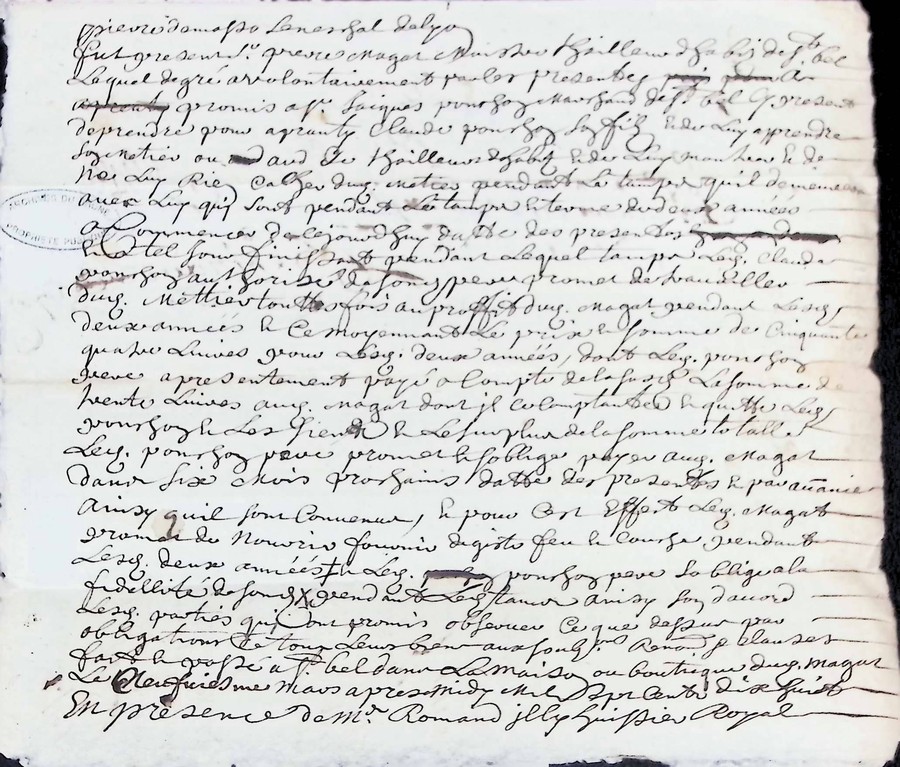 pierre de masso seneschal de lyo
fut present sr. pierre Magat Maistre thailleur dhabis de st. bel
Lequel de gré a volontairement par les presentes
promis a sr. Jacques ponchon Marchand de st bel Cy present
de prendre pour aprantif Claude ponchon son filz & de Luy apprendre
son Metier ou dard de thailleur dhabit & de Luy monstrer & de
Ne Luy Rien Cacher dud. Metier pendant Le temps quil demeurera
avec Luy qui sont pendant Le temps & terme de deux années
a Commencer de Cejourdhuy datte des presentes
& a tel jour finissant pendant Lequel temps Led. Claude
ponchon authorisé de sond pere promet de travailler
dud. Mettier touttes fois au proffit dud. Magat pendant Lesd
deux années & Ce moyennant Le prix & somme de Cinquante
quatre Livres pour Lesd. deux années, dont Led. ponchon
pere a presentement payé a Compte de la susd La somme de
trente Livres aud. Magat dont jl ce Comptante & quitte Led
ponchon & Les siens & Le surplus de la somme totalle
Led. ponchon pere promet & soblige payer aud. Magat
dans six Mois prochains datte des presentes & par avance
ainsy quil sont Convenus, & pour Cest Effect Led. Magat
promet de Nourrir fournir de giste feu & Couche pendant
Lesd. deux années & Led. ponchon pere soblige a la
fidellité de sond pendant Led temps ainsy son d'accord
Lesd. parties qui ont promis observer Ce que dessus par
obligations de tous Leurs biens aux soubs.ons Renon. & clauses
fait & passé a st. bel dans La maison ou boutique dud. Magat
Le Neufviesme Mars apres Midy Mil sept Cents dix huit
En présence de Mr. Romand jlly huissier Royal